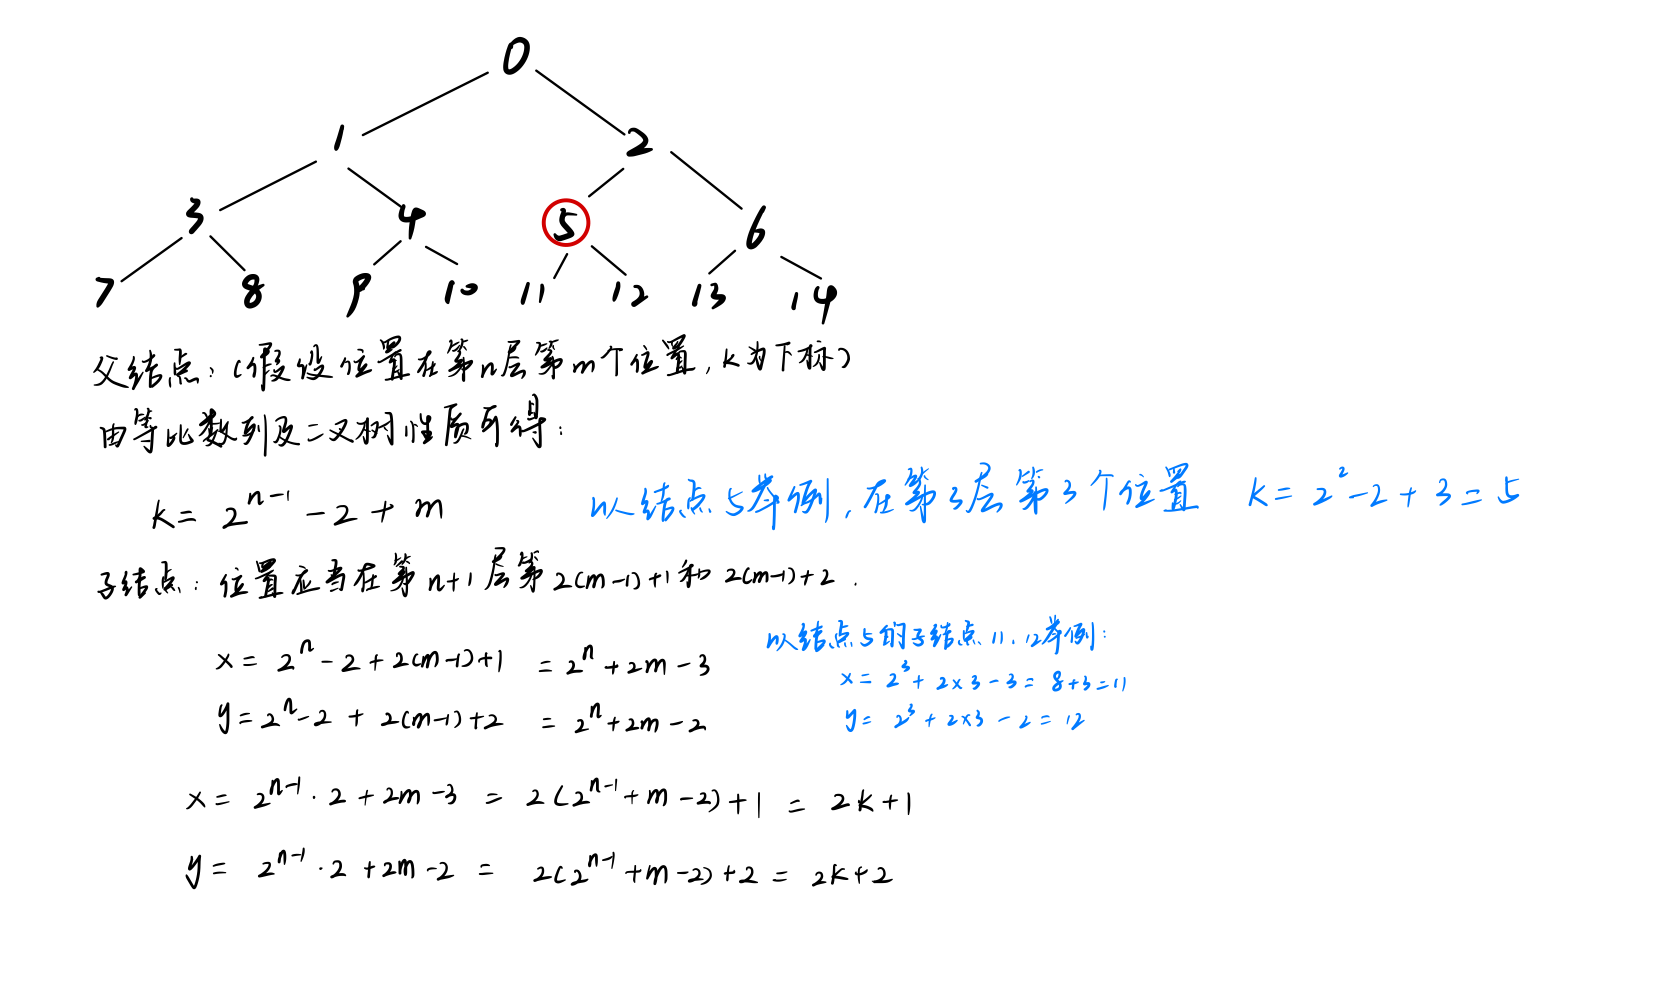 0
1 2
3 4 5 6
7 8 9 10 11 12 13 14
父结点:(假设位置在第n层第m个位置,k为下标)
由等比数列及二叉树性质可得:
k = 2^{n-1} - 2 + m
以结点5举例,在第3层第3个位置 k = 2^2 - 2 + 3 = 5
子结点:位置应当在第n+1层第2(m-1)+1和2(m-1)+2.
以结点5的子结点11、12举例:
x = 2^n - 2 + 2(m-1)+1 = 2^n + 2m - 3
x = 2^3 + 2×3 - 3 = 8+3 = 11
y = 2^n - 2 + 2(m-1)+2 = 2^n + 2m - 2
y = 2^3 + 2×3 - 2 = 12
x = 2^{n-1} · 2 + 2m - 3 = 2(2^{n-1} + m - 2) + 1 = 2k+1
y = 2^{n-1} · 2 + 2m - 2 = 2(2^{n-1} + m - 2) + 2 = 2k+2